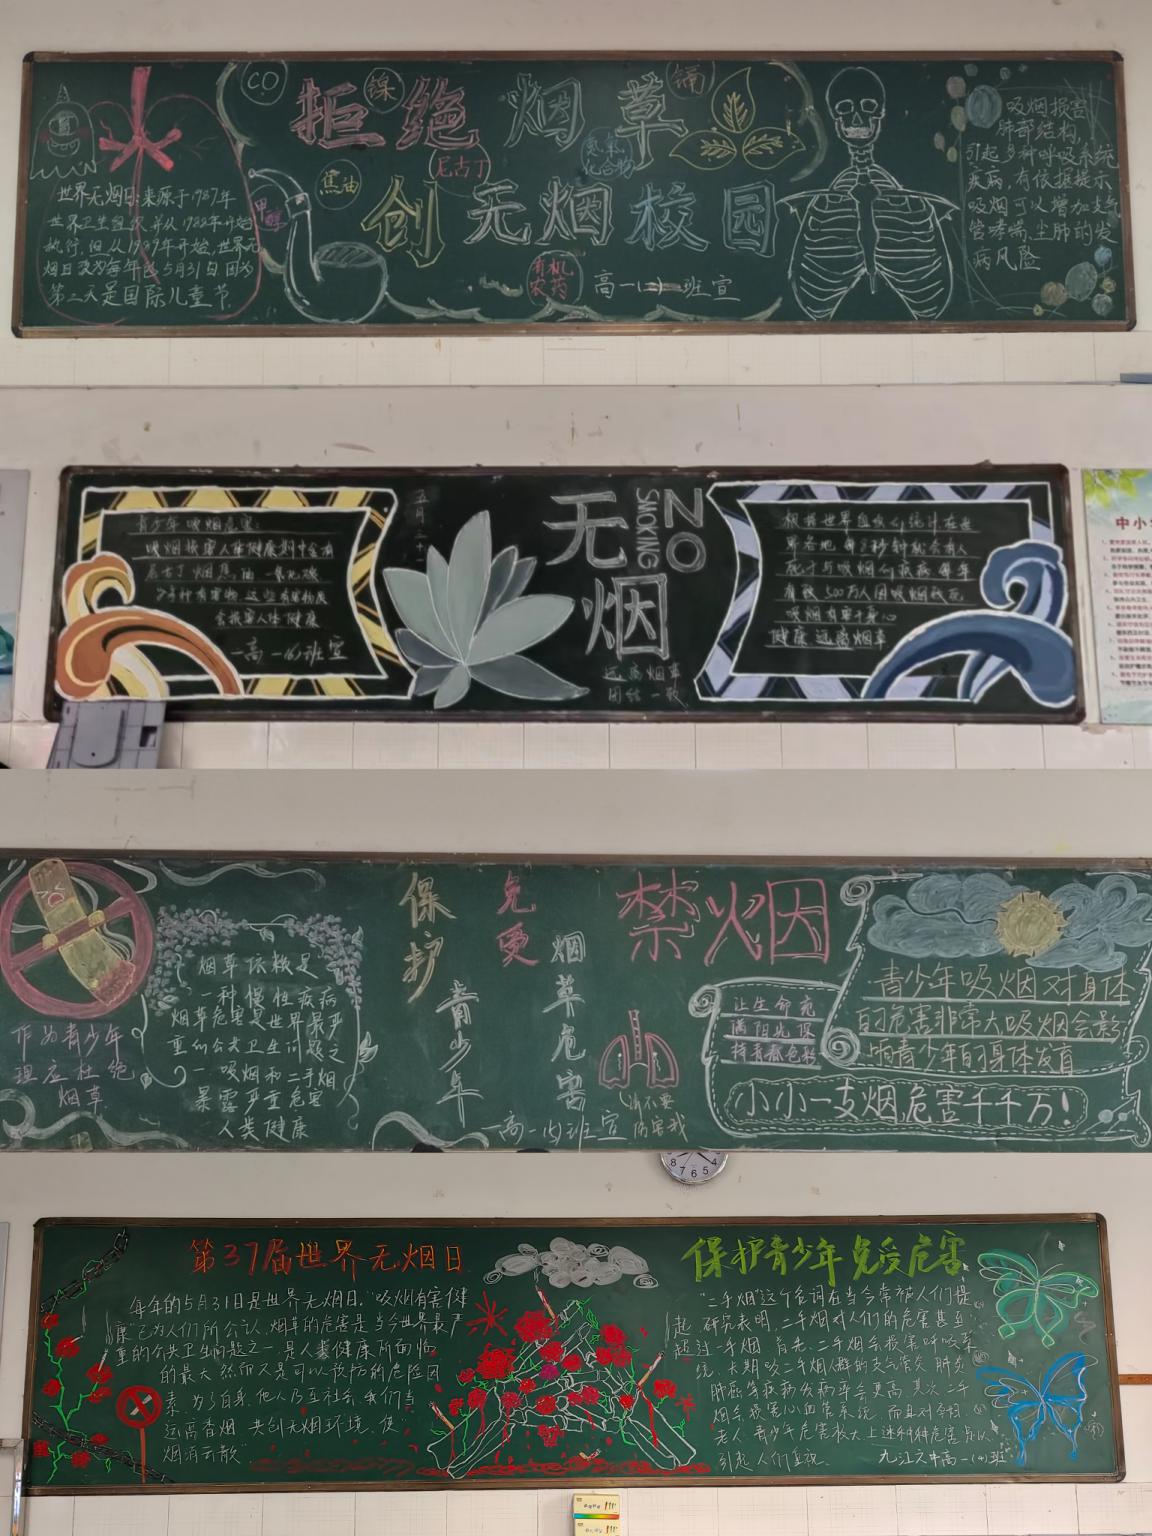 拒绝烟草
创无烟校园
CO
镍
镉
焦油
尼古丁
甲醛
有机
农药
世界无烟日:来源于1987年
世界卫生组织并从1988年开始
执行,但从1989年开始,世界无
烟日改为每年的5月31日因为
第二天是国际儿童节
班宣
吸烟损害
肺部结构,
引起多种呼吸系统
疾病,有依据提示
吸烟可以增加支气
管哮喘,尘肺的发
病风险
五月三十一
无烟
NO
SMOKING
远离烟草
团结一致
青少年吸烟危害:
吸烟损害人体健康烟中含有
尼古丁 烟焦油 一氧化碳
含损害人体健康
班宣
界各地每8秒钟就会有人
死于与吸烟
有被500万人因吸烟致死
吸烟有害于身心
健康远离烟草
中小学
保护
青少年
免受
烟草危害
禁火因
请不要
伤害我
班宣
作为青少年
理应杜绝
烟草
烟草依赖是
一种慢性疾病
烟草危害是世界最严
重的公共卫生问题之
一 吸烟和二手烟
暴露严重危害
人类健康
让生命充
满阳光保
持青春色彩
青少年吸烟对身体
的危害非常大吸烟会影
响青少年的身体发育
小小一支烟危害千千万!
8 7 6 5 4
第37届世界无烟日
每年的5月31日是世界无烟日."吸烟有害健
康"已为人们所公认.烟草的危害是当今世界最严
重的公共卫生问题之一.是人类健康所面临
的最大然而又是可以预防的危险因
素.为了自身.他人乃至社会.我们当
远离香烟 共创无烟环境.使"
烟消云散"
保护青少年免受危害
"二手烟"这个名词在当今常被人们提
起 研究表明,二手烟对人们的危害甚至
超过一手烟 首先.二手烟会损害呼吸系
统.长期吸二手烟人群的支气管炎 肺炎
肺癌等疾病发病率会更高 其次.二手
烟会损害心血管系统.而且对孕妇
老人.青少年危害极大上述种种危害足以
引起人们重视.
九江六中高一(4)班